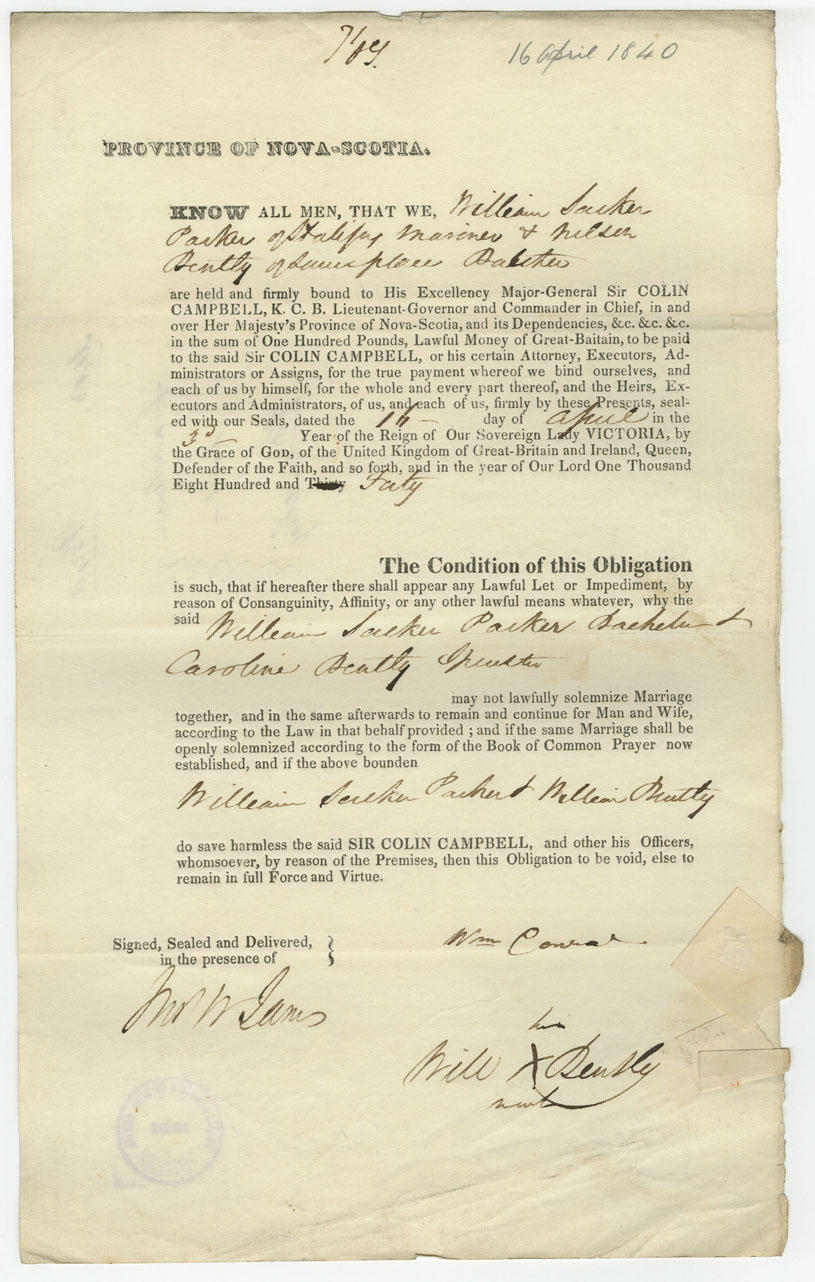 16 April 1840
PROVINCE OF NOVA-SCOTIA.
KNOW ALL MEN, THAT WE, William Sacker
Parker of Halifax Mariner & Nelson
Bently of same place Butcher
are held and firmly bound to His Excellency Major-General Sir COLIN
CAMPBELL, K. C. B. Lieutenant-Governor and Commander in Chief, in and
over Her Majesty's Province of Nova-Scotia, and its Dependencies, &c. &c. &c.
in the sum of One Hundred Pounds, Lawful Money of Great-Baitain, to be paid
to the said Sir COLIN CAMPBELL, or his certain Attorney, Executors, Ad-
ministrators or Assigns, for the true payment whereof we bind ourselves, and
each of us by himself, for the whole and every part thereof, and the Heirs, Ex-
ecutors and Administrators, of us, and each of us, firmly by these Presents, seal-
ed with our Seals, dated the 16 day of April in the
3d Year of the Reign of Our Sovereign Lady VICTORIA, by
the Grace of GOD, of the United Kingdom of Great-Britain and Ireland, Queen,
Defender of the Faith, and so forth, and in the year of Our Lord One Thousand
Eight Hundred and Thirty Forty
The Condition of this Obligation
is such, that if hereafter there shall appear any Lawful Let or Impediment, by
reason of Consanguinity, Affinity, or any other lawful means whatever, why the
said William Sacker Parker Bachelor &
Caroline Bently Spinster
may not lawfully solemnize Marriage
together, and in the same afterwards to remain and continue for Man and Wife,
according to the Law in that behalf provided ; and if the same Marriage shall be
openly solemnized according to the form of the Book of Common Prayer now
established, and if the above bounden
William Sacker Parker & William Bently
do save harmless the said SIR COLIN CAMPBELL, and other his Officers,
whomsoever, by reason of the Premises, then this Obligation to be void, else to
remain in full Force and Virtue.
Signed, Sealed and Delivered,
in the presence of
Wm Conrad
his
Will X Bently
mark